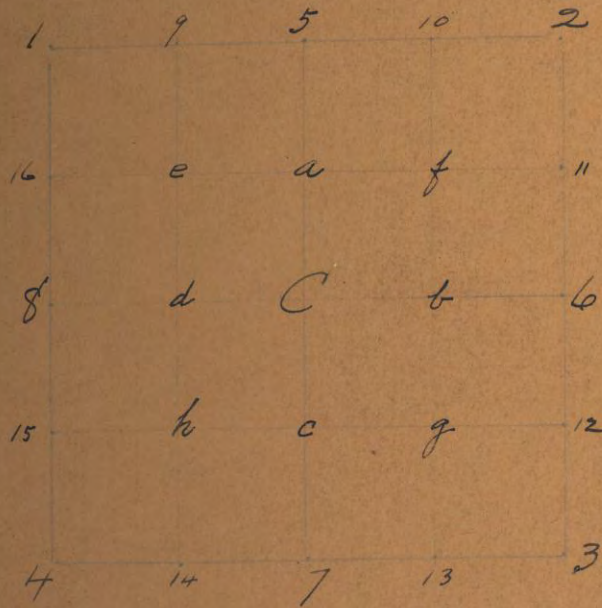 1 9 5 10 2
16 e a f 11
8 d C b 6
15 h c g 12
4 14 7 13 3